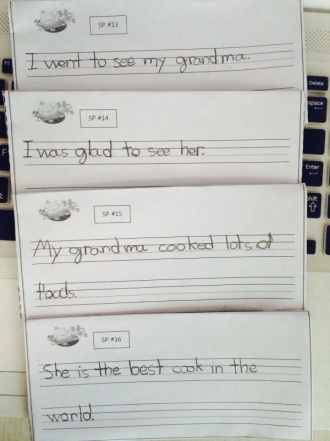 SP #13
I went to see my grandma.
SP #14
I was glad to see her.
Delete
space
Enter
Shift
SP #15
My grandma cooked lots of
foods.
SP #16
She is the best cook in the
world.